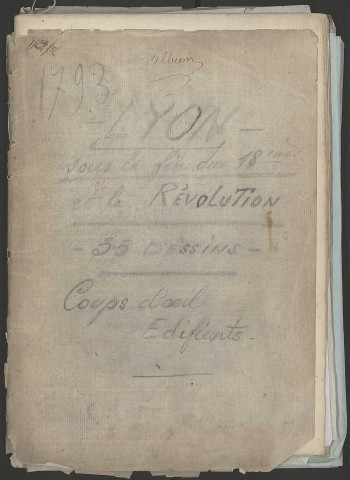 album
1793
- LYON -
sous la fin du 18ème
et la RÉVOLUTION
- 35 DESSINS -
Coups d'œil
Edifiants.